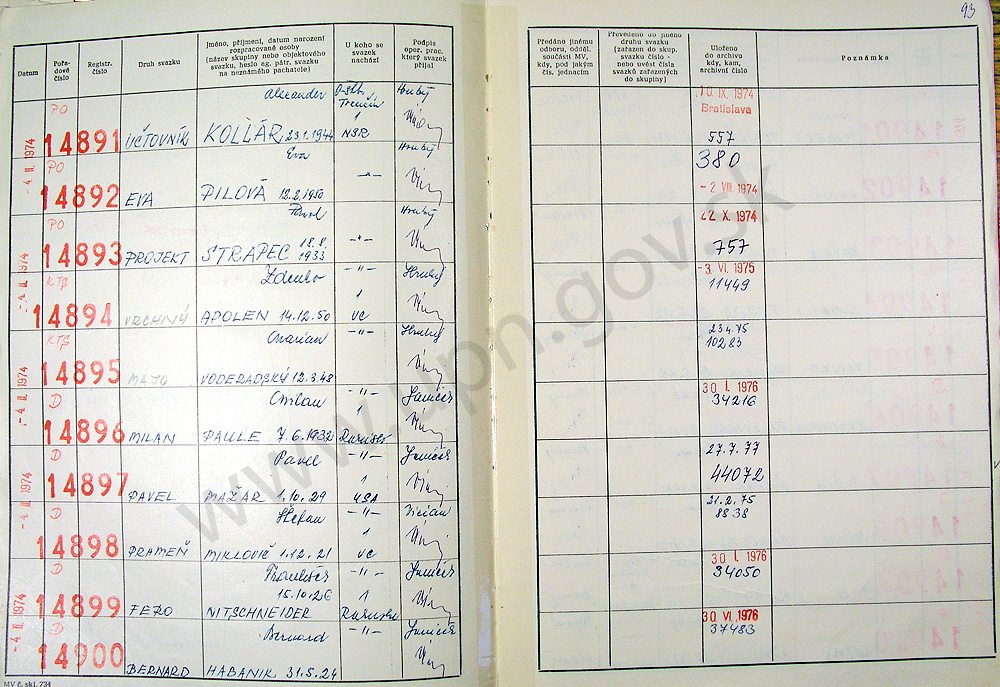 93
Datum
Pořadové číslo
Registr. číslo
Druh svazku
Jméno, příjmení, datum narození rozpracované osoby (název skupiny nebo objektového svazku, heslo ag. pátr. svazku na neznámého pachatele)
U koho se svazek nachází
Podpis oper. prac. který svazek přijal
Předáno jinému odboru, odděl. součásti MV, kdy, pod jakým čís. jednacím
Převedeno do jiného druhu svazku (zařazen do skup. svazku číslo - nebo uvést čísla svazků zařazených do skupiny)
Uloženo do archivu kdy, kam, archivní číslo
Poznámka
Alexander Trenčín Hrubý
PO 1
- 4 II 1974 14891 ÚČTOVNÍK KOLLÁR 23.1.1944 NSR
10. IX. 1974
Bratislava
557
Eva Hrubý
PO
14892 EVA PILOVÁ 12.2.1950
380
- 2 VIII 1974
Pavol Hrubý
PO
- 4 II 1974 14893 PROJEKT STRAPEC 1933 -"-
22 X 1974
757
Zdenko -"- Hrubý
1
14894 VRCHNÝ APOLEN 14.12.50 VC
- 3. VI. 1975
11449
Marian -"- Hrubý
- 4 II 1974 14895 MAJO VODERADSKÝ 12.3.48
23.4.75
10283
Milan -"- Janiček
D
- 4 II 1974 14896 MILAN PAULE 7.6.1932 Rakúsko
30 I. 1976
34216
Pavel -"- Janiček
D 1
- 4 II 1974 14897 PAVEL MAŽÁR 1.10.29 USA
27.7.77
44072
Štefan -"- Vician
D 1
- 4 II 1974 14898 PRAMEŇ MIKLOVIČ 1.12.21 VC
21.2.75
8838
František -"- Janiček
D 15.10.26 1
- 4 II 1974 14899 FERO NITSCHNEIDER Rakúsko
30 I. 1976
34050
Bernard -"- Janiček
D
- 4 II 1974 14900 BERNARD HABANIK 31.5.24
30 VI. 1976
37483
MV č. skl. 734
www.upn.gov.sk